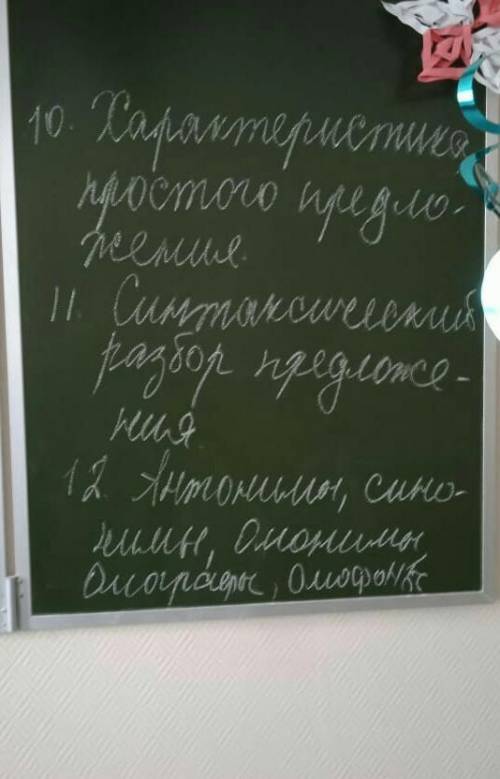 10. Характеристика
простого предло-
жения.
11. Синтаксический
разбор предложе-
ния.
12. Антонимы, сино-
нимы, омонимы
Омографы, Омофоны